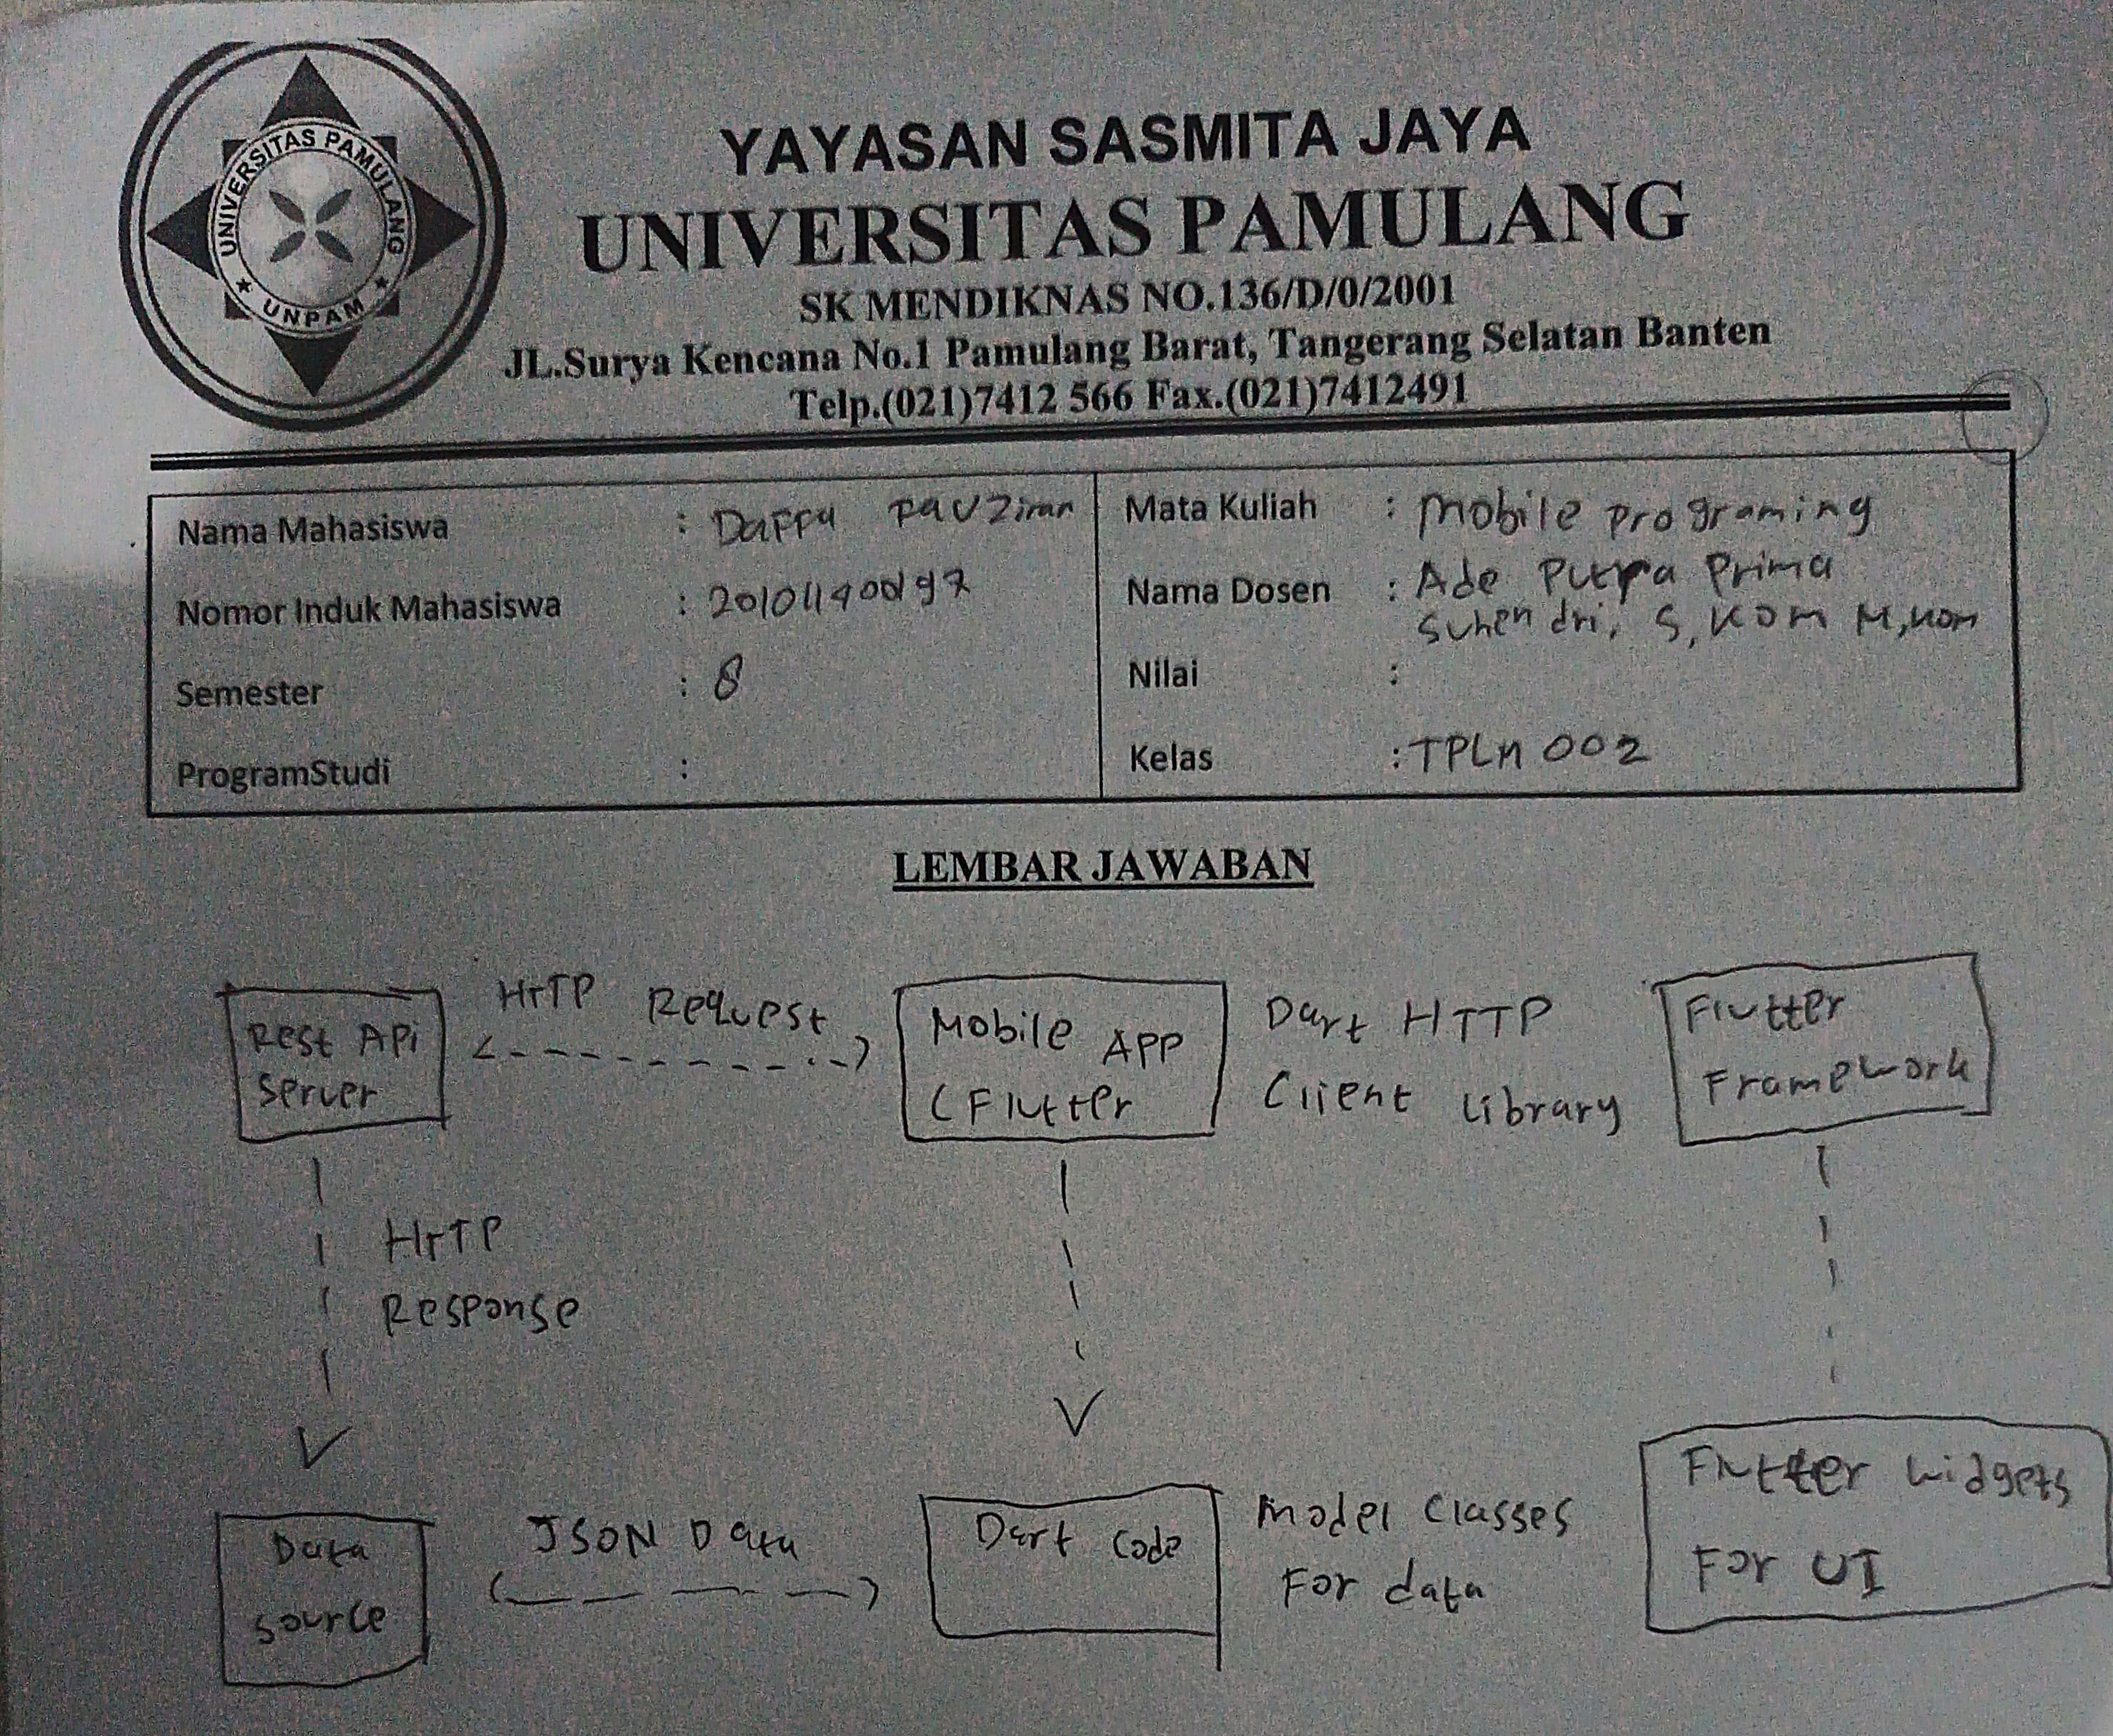 UNIVERSITAS PAMULANG
UNPAM
YAYASAN SASMITA JAYA
UNIVERSITAS PAMULANG
SK MENDIKNAS NO.136/D/0/2001
JL.Surya Kencana No.1 Pamulang Barat, Tangerang Selatan Banten
Telp.(021)7412 566 Fax.(021)7412491
Nama Mahasiswa :
Nomor Induk Mahasiswa :
Semester : 8
ProgramStudi :
Mata Kuliah : Mobile programing
Nama Dosen : Ade Putra Prima
Suhendri, S,Kom M,Kom
Nilai :
Kelas : TPLM 002
LEMBAR JAWABAN
Rest APi
Server
HTTP Request
Mobile APP
(Flutter
Dart HTTP
Client Library
Flutter
Framework
HTTP
Response
Data
Source
JSON Data
Dart Code
Model Classes
For data
Flutter Widgets
For UI